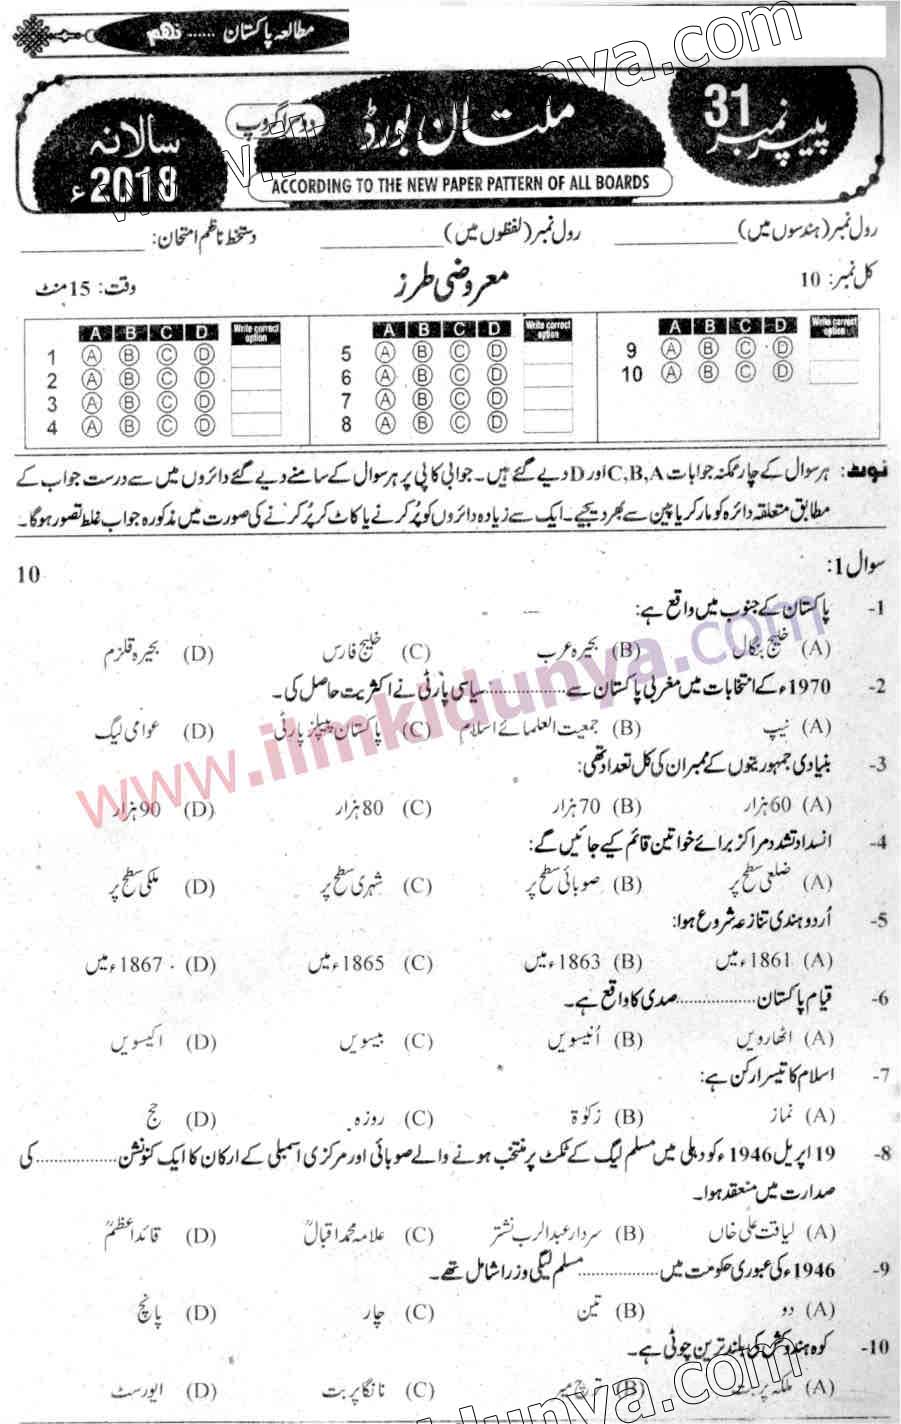 مطالعہ پاکستان ...... نہم
پیپر نمبر 31
ملتان بورڈ
دوسرا گروپ
سالانہ 2018ء
ACCORDING TO THE NEW PAPER PATTERN OF ALL BOARDS
رول نمبر (ہندسوں میں) ____________ رول نمبر (لفظوں میں) ____________ دستخط ناظم امتحان: ____________
کل نمبر: 10 معروضی طرز وقت: 15 منٹ
A B C D Write correct option A B C D Write correct option A B C D Write correct option
1 A B C D 5 A B C D 9 A B C D
2 A B C D 6 A B C D 10 A B C D
3 A B C D 7 A B C D
4 A B C D 8 A B C D
نوٹ: ہر سوال کے چار ممکنہ جوابات C,B,A اور D دیے گئے ہیں۔ جوابی کاپی پر ہر سوال کے سامنے دیے گئے دائروں میں سے درست جواب کے
مطابق متعلقہ دائرہ کو مارکر یا پین سے بھر دیجیے۔ ایک سے زیادہ دائروں کو پُر کرنے یا کاٹ کر پُر کرنے کی صورت میں مذکورہ جواب غلط تصور ہوگا۔
سوال 1: 10
1- پاکستان کے جنوب میں واقع ہے:
(A) خلیج بنگال (B) بحیرہ عرب (C) خلیج فارس (D) بحیرہ قلزم
2- 1970ء کے انتخابات میں مغربی پاکستان سے ............... سیاسی پارٹی نے اکثریت حاصل کی۔
(A) نیپ (B) جمعیت العلمائے اسلام (C) پاکستان پیپلز پارٹی (D) عوامی لیگ
3- بنیادی جمہوریتوں کے ممبران کی کل تعداد تھی:
(A) 60 ہزار (B) 70 ہزار (C) 80 ہزار (D) 90 ہزار
4- انسداد تشدد مراکز برائے خواتین قائم کیے جائیں گے:
(A) ضلعی سطح پر (B) صوبائی سطح پر (C) شہری سطح پر (D) ملکی سطح پر
5- اُردو ہندی تنازعہ شروع ہوا:
(A) 1861ء میں (B) 1863ء میں (C) 1865ء میں (D) 1867ء میں
6- قیام پاکستان ............... صدی کا واقع ہے۔
(A) اٹھارویں (B) اُنیسویں (C) بیسویں (D) اکیسویں
7- اسلام کا تیسرا رکن ہے:
(A) نماز (B) زکوٰۃ (C) روزہ (D) حج
8- 19 اپریل 1946ء کو دہلی میں مسلم لیگ کے ٹکٹ پر منتخب ہونے والے صوبائی اور مرکزی اسمبلی کے ارکان کا ایک کنونشن ............... کی
صدارت میں منعقد ہوا۔
(A) لیاقت علی خاں (B) سردار عبدالرب نشتر (C) علامہ محمد اقبالؒ (D) قائداعظمؒ
9- 1946ء کی عبوری حکومت میں ............... مسلم لیگی وزرا شامل تھے۔
(A) دو (B) تین (C) چار (D) پانچ
10- کوہ ہندوکش کی بلند ترین چوٹی ہے۔
(A) ملکہ پربت (B) ترچ میر (C) نانگا پربت (D) ایورسٹ
www.ilmkidunya.com